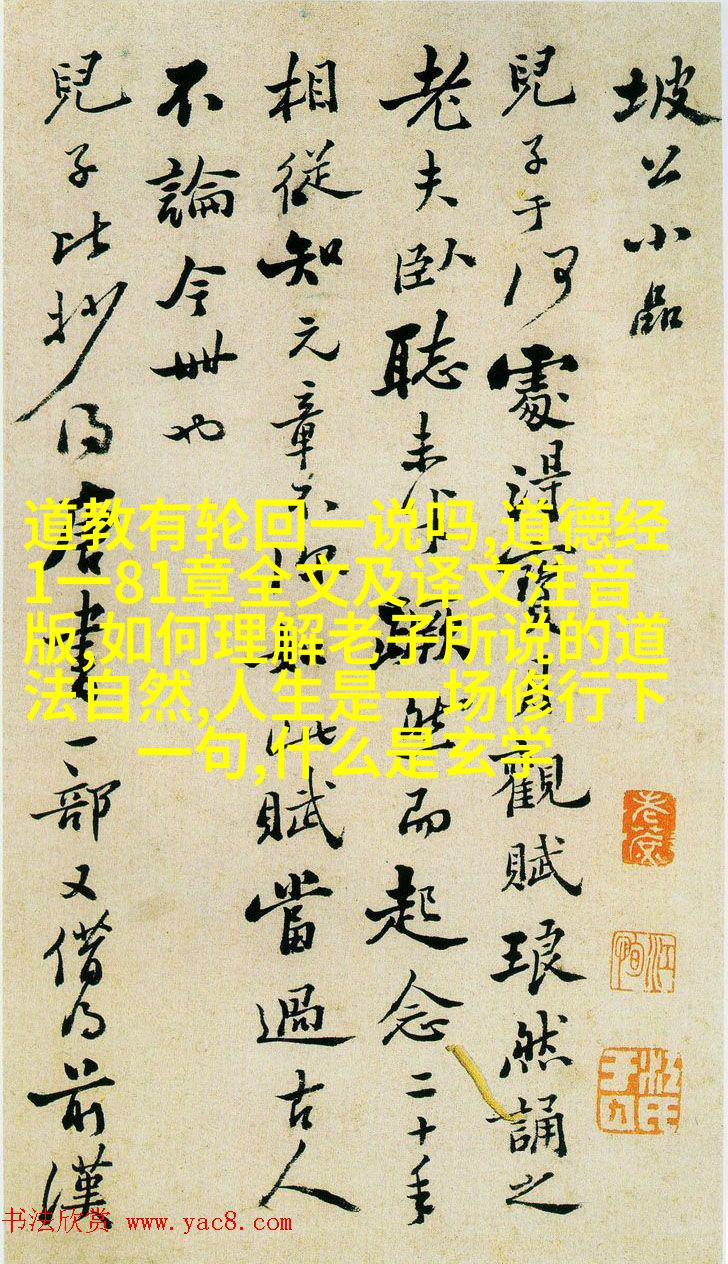 坡公小品
兒子于何處得寶月觀賦琅然誦之
老夫臥聽未半躍然而起念二十年
相從知元章不此賦當過古人
不論今世也
兒子比抄得唐書一部又借得前漢
道教有轮回一说吗,道德经
1一81章全文及译文注音
版,如何理解老子所说的道
法自然,人生是一场修行下
一句,什么是玄学
书法欣赏 www.yac8.com